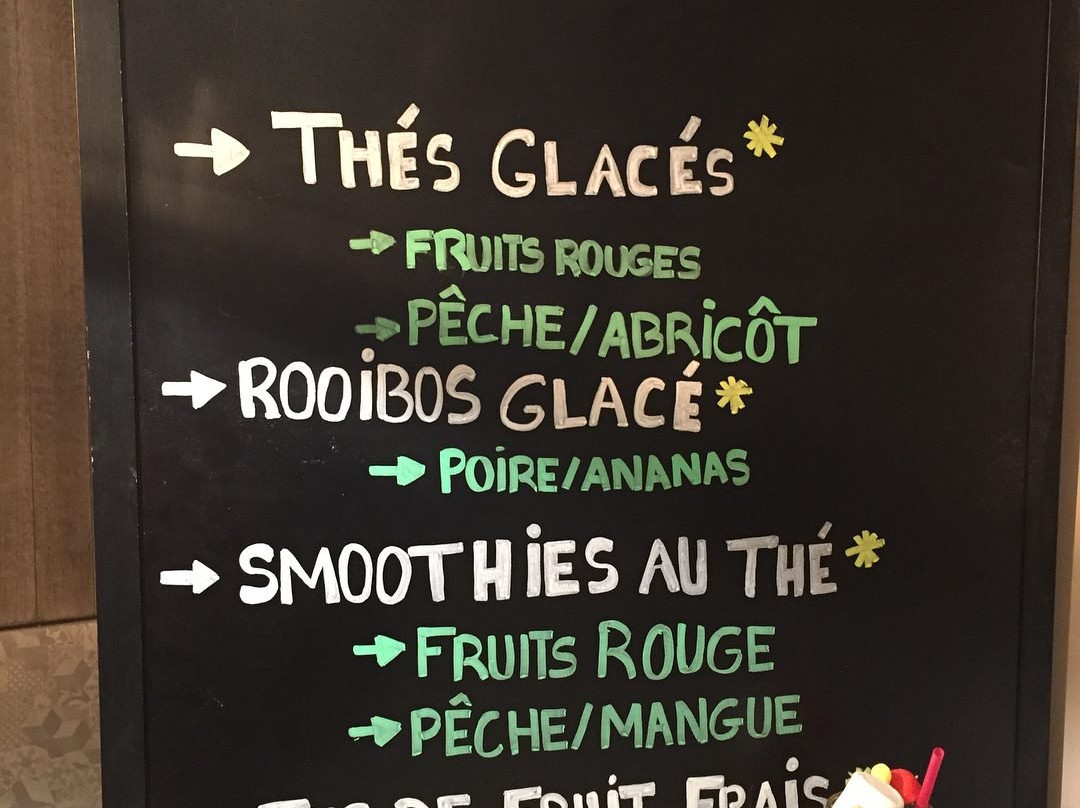 → THÉS GLACÉS*
→ FRUITS ROUGES
→ PÊCHE/ABRICÔT
→ ROOIBOS GLACÉ*
→ POIRE/ANANAS
→ SMOOTHIES AU THÉ*
→ FRUITS ROUGE
→ PÊCHE/MANGUE
DE FRUIT FRAIS